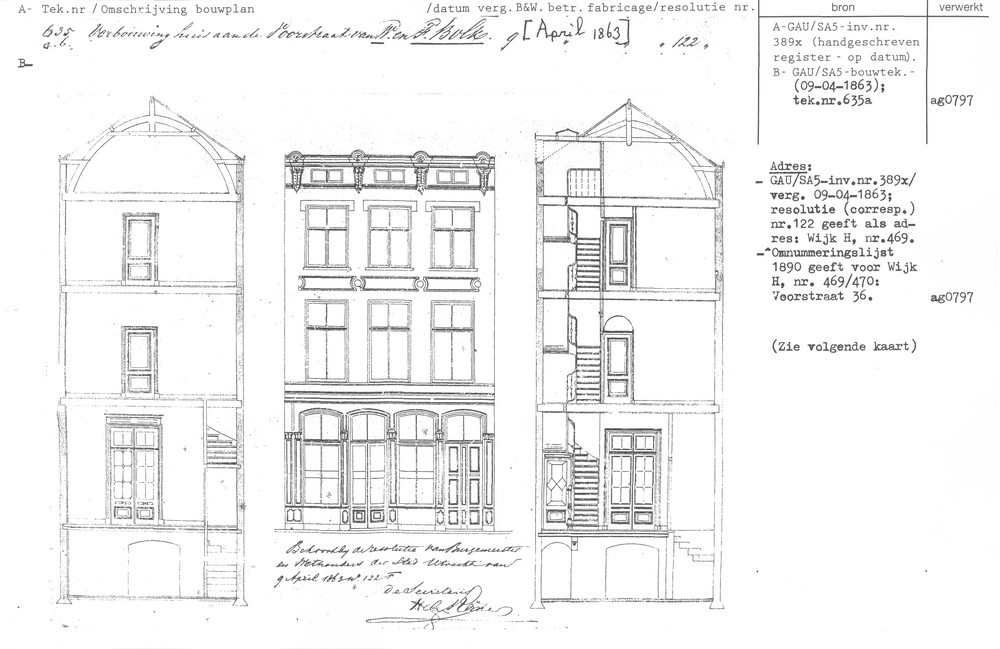 A- Tek.nr /Omschrijving bouwplan /datum verg.B&W.betr.fabricage/resolutie nr.
635 a.b. Verbouwing huis aan de Voorstraat van Wn. en F. Bolk. 9 [April 1863] „ 122 „
B-
bron
verwerkt
A-GAU/SA5-inv.nr.
389x (handgeschreven
register - op datum).
B- GAU/SA5-bouwtek.-
(09-04-1863);
tek.nr.635a ag0797
Adres:
- GAU/SA5-inv.nr.389x/
verg. 09-04-1863;
resolutie (corresp.)
nr.122 geeft als ad-
res: Wijk H, nr.469.
- Omnummeringslijst
1890 geeft voor Wijk
H, nr. 469/470:
Voorstraat 36. ag0797
(Zie volgende kaart)
Behoort bij de resolutie van Burgemeester
en Wethouders der Stad Utrecht van
9 April 1863 no. 122 F
De Secretaris